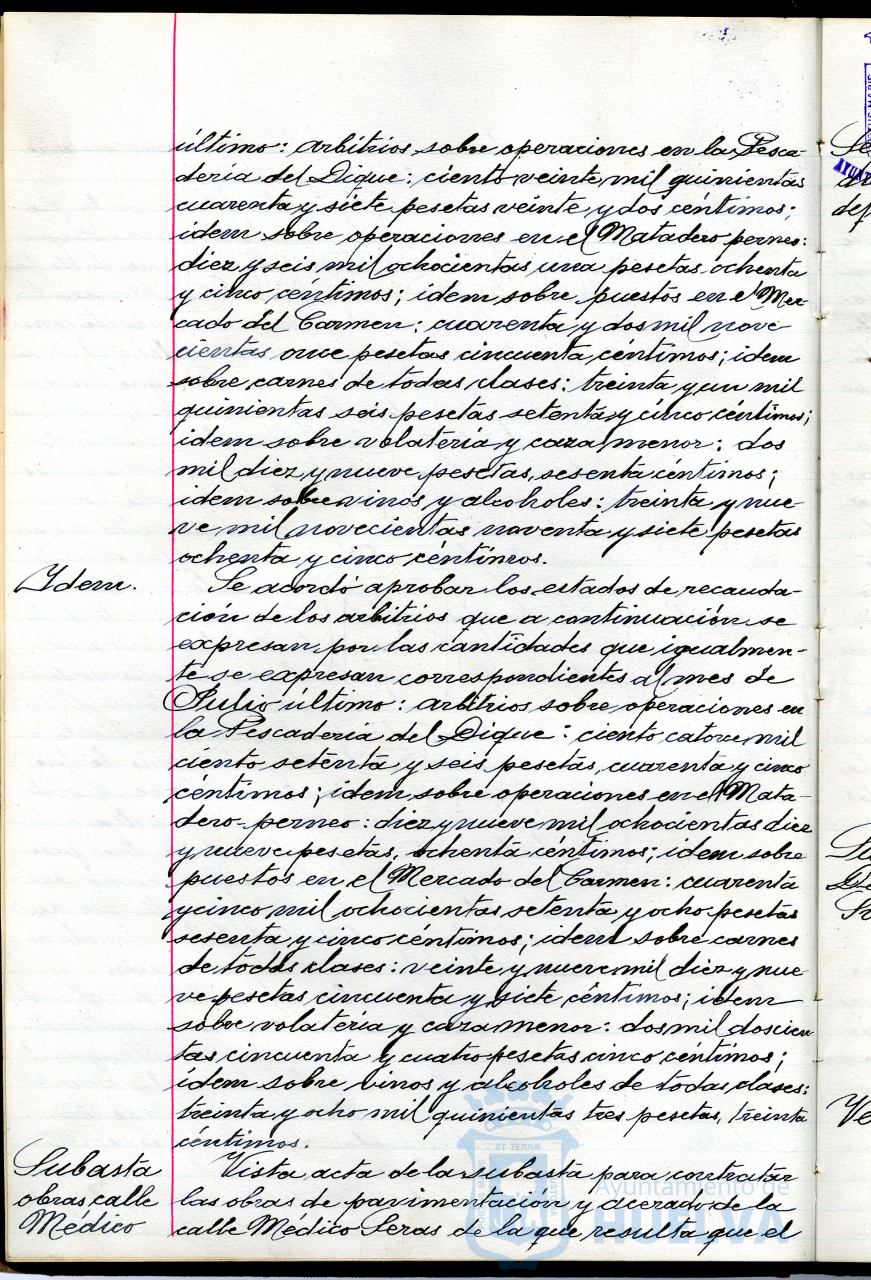 último: arbitrios sobre operaciones en la Pesca-
dería del Dique: ciento veinte mil quinientas
cuarenta y siete pesetas veinte y dos céntimos;
idem sobre operaciones en el Matadero perneo:
diez y seis mil ochocientas una pesetas ochenta
y cinco céntimos; idem sobre puestos en el Mer-
cado del Carmen: cuarenta y dos mil nove-
cientas once pesetas cincuenta céntimos; idem
sobre carnes de todas clases: treinta y un mil
quinientas seis pesetas setenta y cinco céntimos;
idem sobre volatería y caza menor: dos
mil diez y nueve pesetas, sesenta céntimos;
idem sobre vinos y alcoholes: treinta y nue-
ve mil novecientas noventa y siete pesetas
ochenta y cinco céntimos.
Idem.
Se acordó aprobar los estados de recauda-
ción de los arbitrios que a continuación se
expresan por las cantidades que igualmen-
te se expresan correspondientes al mes de
Julio último: arbitrios sobre operaciones en
la Pescadería del Dique: ciento catorce mil
ciento setenta y seis pesetas, cuarenta y cinco
céntimos; idem sobre operaciones en el Mata-
dero-perneo: diez y nueve mil ochocientas diez
y nueve pesetas, ochenta céntimos; idem sobre
puestos en el Mercado del Carmen: cuarenta
y cinco mil ochocientas setenta y ocho pesetas
sesenta y cinco céntimos; idem sobre carnes
de todas clases: veinte y nueve mil diez y nue-
ve pesetas cincuenta y siete céntimos; idem
sobre volatería y caza menor: dos mil doscien-
tas cincuenta y cuatro pesetas cinco céntimos;
idem sobre vinos y alcoholes de todas clases:
treinta y ocho mil quinientas tres pesetas, treinta
céntimos.
Subasta
obras calle
Médico
Vista acta de la subasta para contratar
las obras de pavimentación y acerado de la
calle Médico Seras de la que resulta que el
Ayuntamiento de
HUELVA